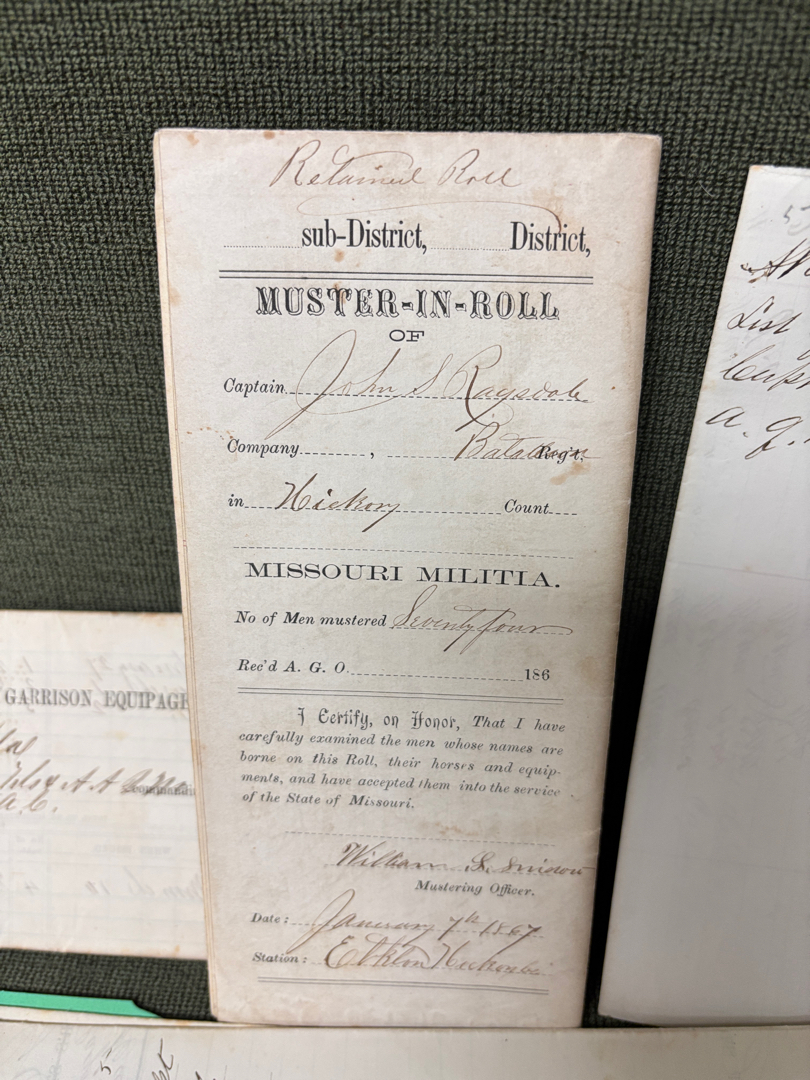 Retained Roll
sub-District, District,
MUSTER-IN-ROLL
OF
Captain John S Ragsdale
Company , Battalion Reg't.
in Hickory Count
MISSOURI MILITIA.
No of Men mustered Seventy four
Rec'd A. G. O. 186
I Certify, on Honor, That I have
carefully examined the men whose names are
borne on this Roll, their horses and equip-
ments, and have accepted them into the service
of the State of Missouri.
William L.
Mustering Officer.
Date: January 7th 1867
Station: Elkton Hickory Co
GARRISON EQUIPAGE
List
a. q.